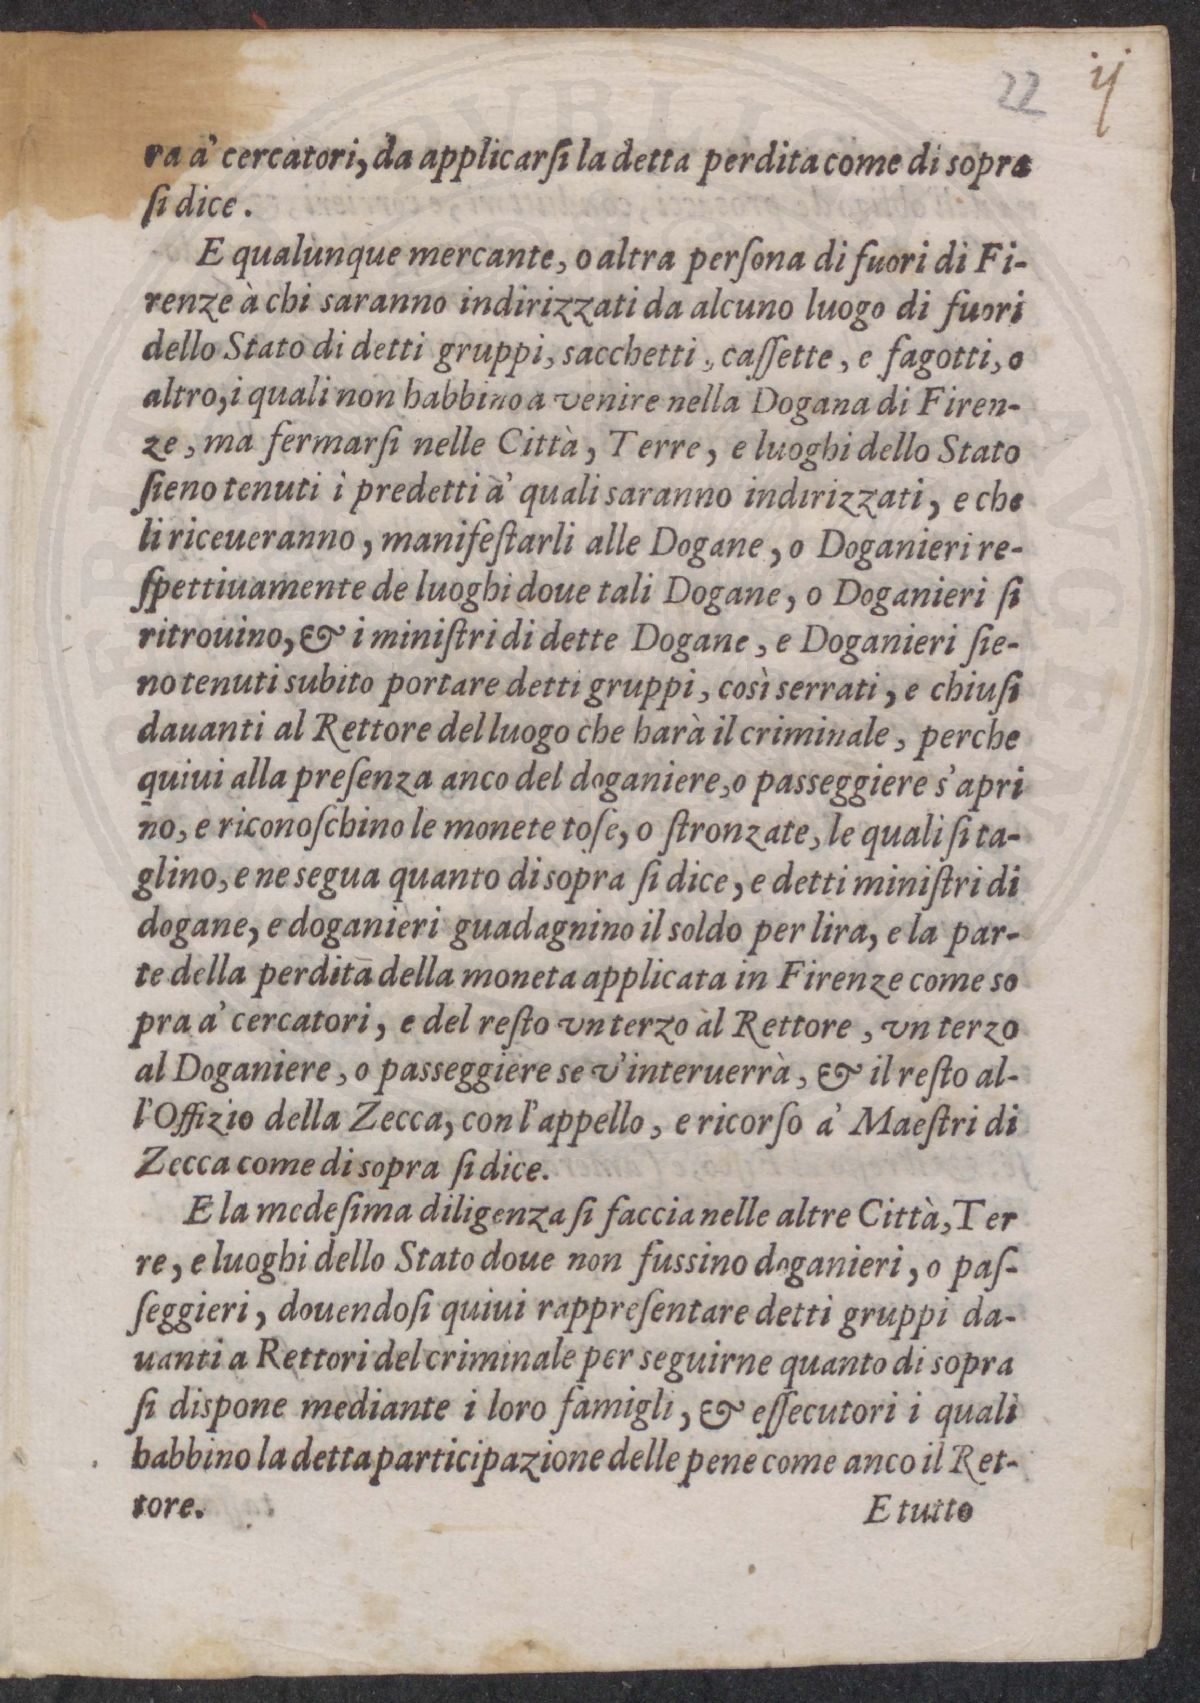 22 ij
ra a' cercatori, da applicarſi la detta perdita come di sopra
ſi dice.
E qualunque mercante, o altra perſona di fuori di Fi-
renze à chi saranno indirizzati da alcuno luogo di fuori
dello Stato di detti gruppi, sacchetti, caſſette, e fagotti, o
altro, i quali non habbino a venire nella Dogana di Firen-
ze, ma fermarſi nelle Città, Terre, e luoghi dello Stato
ſieno tenuti i predetti à' quali saranno indirizzati, e che
li riceueranno, manifeſtarli alle Dogane, o Doganieri re-
ſpettiuamente de luoghi doue tali Dogane, o Doganieri ſi
ritrouino, & i miniſtri di dette Dogane, e Doganieri ſie-
no tenuti subito portare detti gruppi, così serrati, e chiuſi
dauanti al Rettore del luogo che harà il criminale, perche
quiui alla preſenza anco del doganiere, o passeggiere s'apri
no, e riconoſchino le monete toſe, o ſtronzate, le quali ſi ta-
glino, e ne segua quanto di sopra ſi dice, e detti miniſtri di
dogane, e doganieri guadagnino il soldo per lira, e la par-
te della perdita della moneta applicata in Firenze come so
pra a' cercatori, e del reſto vn terzo al Rettore, vn terzo
al Doganiere, o passeggiere se v'interuerrà, & il reſto al-
l'Offizio della Zecca, con l'appello, e ricorſo a' Maeſtri di
Zecca come di sopra ſi dice.
E la medeſima diligenza ſi faccia nelle altre Città, Ter
re, e luoghi dello Stato doue non fussino doganieri, o paſ-
ſeggieri, douendoſi quiui rappreſentare detti gruppi da-
uanti a Rettori del criminale per seguirne quanto di sopra
ſi dispone mediante i loro famigli, & eſſecutori i quali
habbino la detta participazione delle pene come anco il Ret-
tore. E tutto